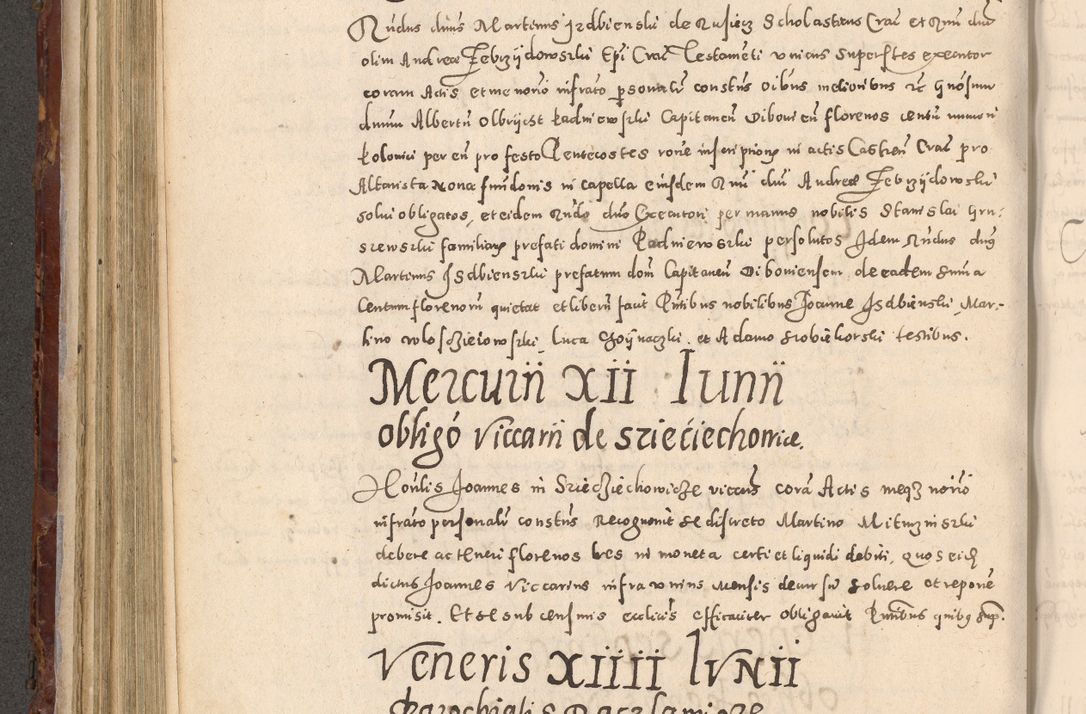 Rndus dnus Martinus Izdbienski de Rusiecz Scholasticus Crac et Rmi dni
olim Andreae Zebrzijdowszki Epi Crac Testamenti unicus superstes executor
coram Actis et me notrio infrato personalr constus oibus melioribus etc gnosum
dnum Albertu Olbrijcht Kadniewszki Capitaneu Oibovien florenos centu numeri
polonici per eu pro festo Pentecostes rone inscriptionis in actis Castren Crac pro
Altarista nonae fundonis in capella eiusdem Rmi dni Andreae Zebrzijdowski
solui obligatos, et eidem Rndo dno Executori per manus nobilis Stanislai Gru-
szewszki familiaris prefati domini Kadniewszki persolutos Idem Rndus dnus
Martinus Isdbienszki prefatum dom Capitaneu Oiboviensem de eadem suma
Centum florenoru quietat et liberu facit Pntibus nobilibus Joanne Isdbienski, Mar-
tino Woloscziejowszki, Luca Choijnaczki et Adamo Srobiekorski testibus.
Mercurii XII Iunii
obligo Viccarii de szieciechovice.
Honlis Joannes in Sziecziechowicze viccus cora Actis meqz norio
infrato personalr constus Recognouit se discreto Martino Mitwzinszki
debere ac teneri florenos tres in moneta certi et liquidi debiti, quos eid
dictus Joannes Viccarius infra unius mensis decursu soluere et repone
promisit. Et se sub censuris ecclicis efficaciter obligauit Pntibus quibus sup.
Veneris XIIII IVNII
Parochialis Raczlawicze